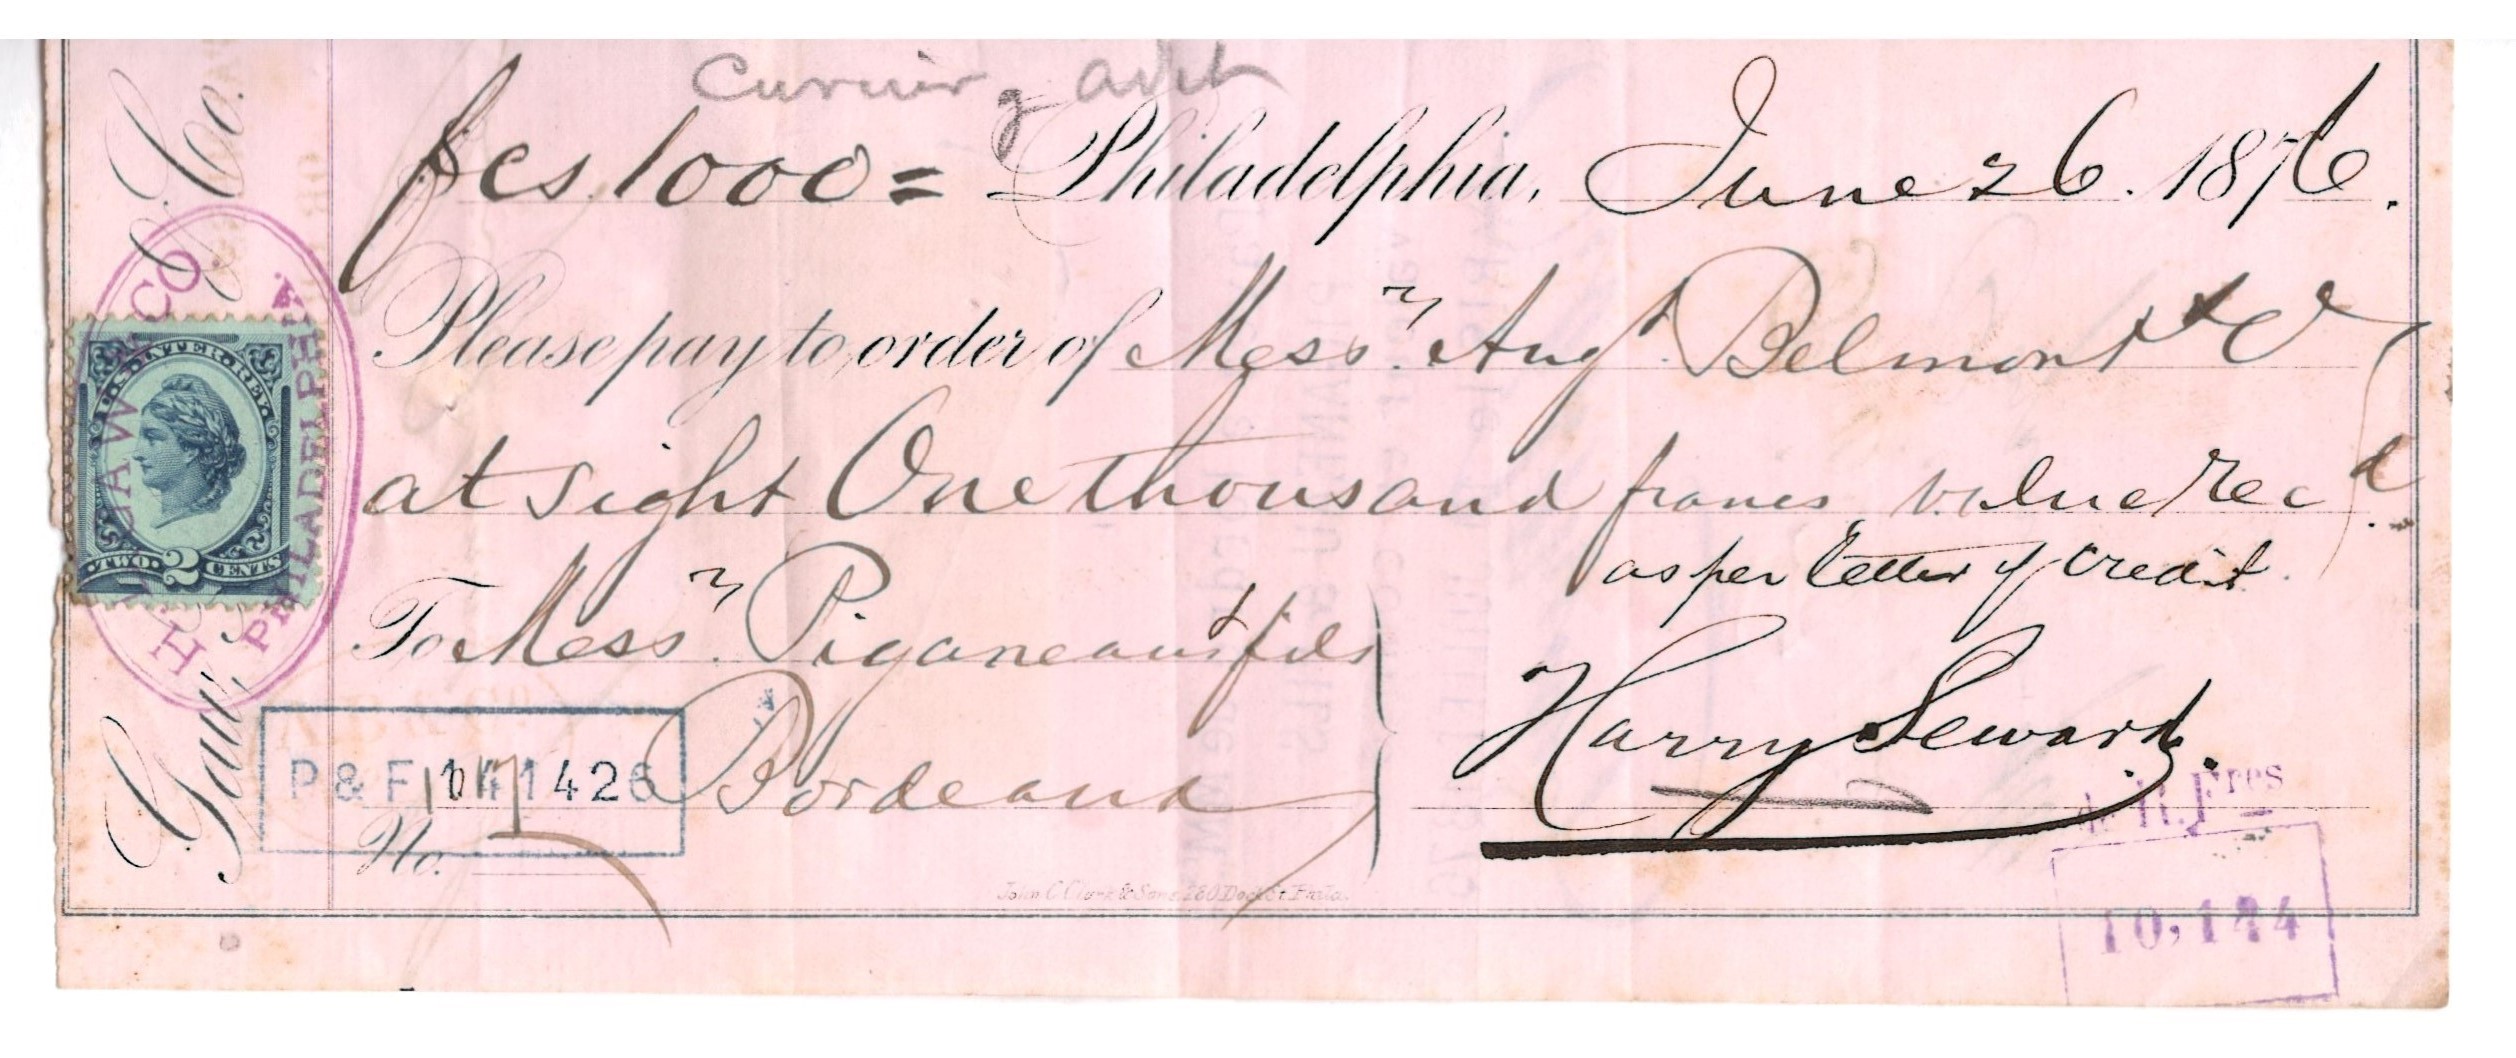 fcs 1000 = Philadelphia, June 26. 1876.
Please pay to order of Mess.rs Aug.t Belmont & Co
at sight One thousand francs, value Rec.d
as per letter of credit.
To Mess.rs Piganeau & fils
Bordeaux
Harry Seward.
P & F 141426
No.
John C. Clark & Sons, 230 Dock St. Phila.
R. Fres
10,144
Gaw, & Co.
U.S. INTER. REV.
TWO 2 CENTS
H GAW & CO
PHILADELPHIA